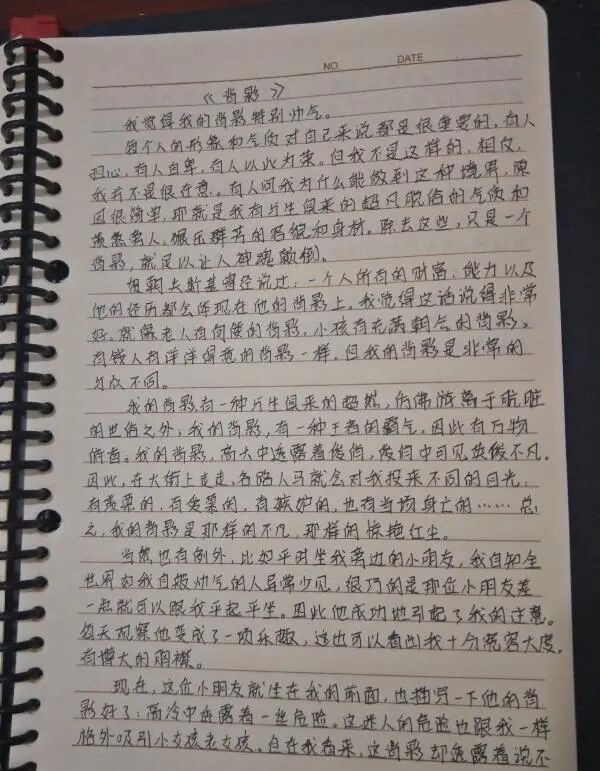 NO.
DATE
《背影》
我觉得我的背影特别帅气。
每个人的形象和气质对自己来说都是很重要的,有人
担心,有人自卑,有人以此为荣。但我不是这样的,相反,
我并不是很在意。有人问我为什么能做到这种境界,原
因很简单,那就是我有与生俱来的超凡脱俗的气质和
羡煞旁人,碾压群芳的容貌和身材。除去这些,只是一个
背影,就足以让人神魂颠倒。
帕朝夫斯基曾经说过:一个人所有的财富、能力以及
他的经历都会体现在他的背影上。我觉得这话说得非常
好,就像老人有佝偻的背影,小孩有充满朝气的背影,
有钱人有洋洋得意的背影一样,但我的背影是非常的
与众不同。
我的背影有一种与生俱来的超然,仿佛游离于肮脏
的世俗之外;我的背影,有一种王者的霸气,因此有万物
俯首。我的背影,高大中透露着俊俏,俊俏中可见英俊不凡。
因此,在大街上走走,各路人马就会对我投来不同的目光:
有羡慕的,有爱慕的,有嫉妒的,也有当场身亡的……总
之,我的背影是那样的不凡,那样的惊艳红尘。
当然也有例外,比如平时坐我旁边的小朋友,我自知全
世界如我自般帅气的人异常少见,很巧的是那位小朋友差
一点就可以跟我平起平坐。因此他成功地引起了我的注意。
每天观察他变成了一项乐趣,这也可以看出我十分宽容大度,
有博大的胸襟。
现在,这位小朋友就坐在我的前面,也描写一下他的背
影好了:高冷中透露着一丝危险。这迷人的危险也跟我一样
格外吸引小女孩老女孩。但在我看来,这背影却透露着说不